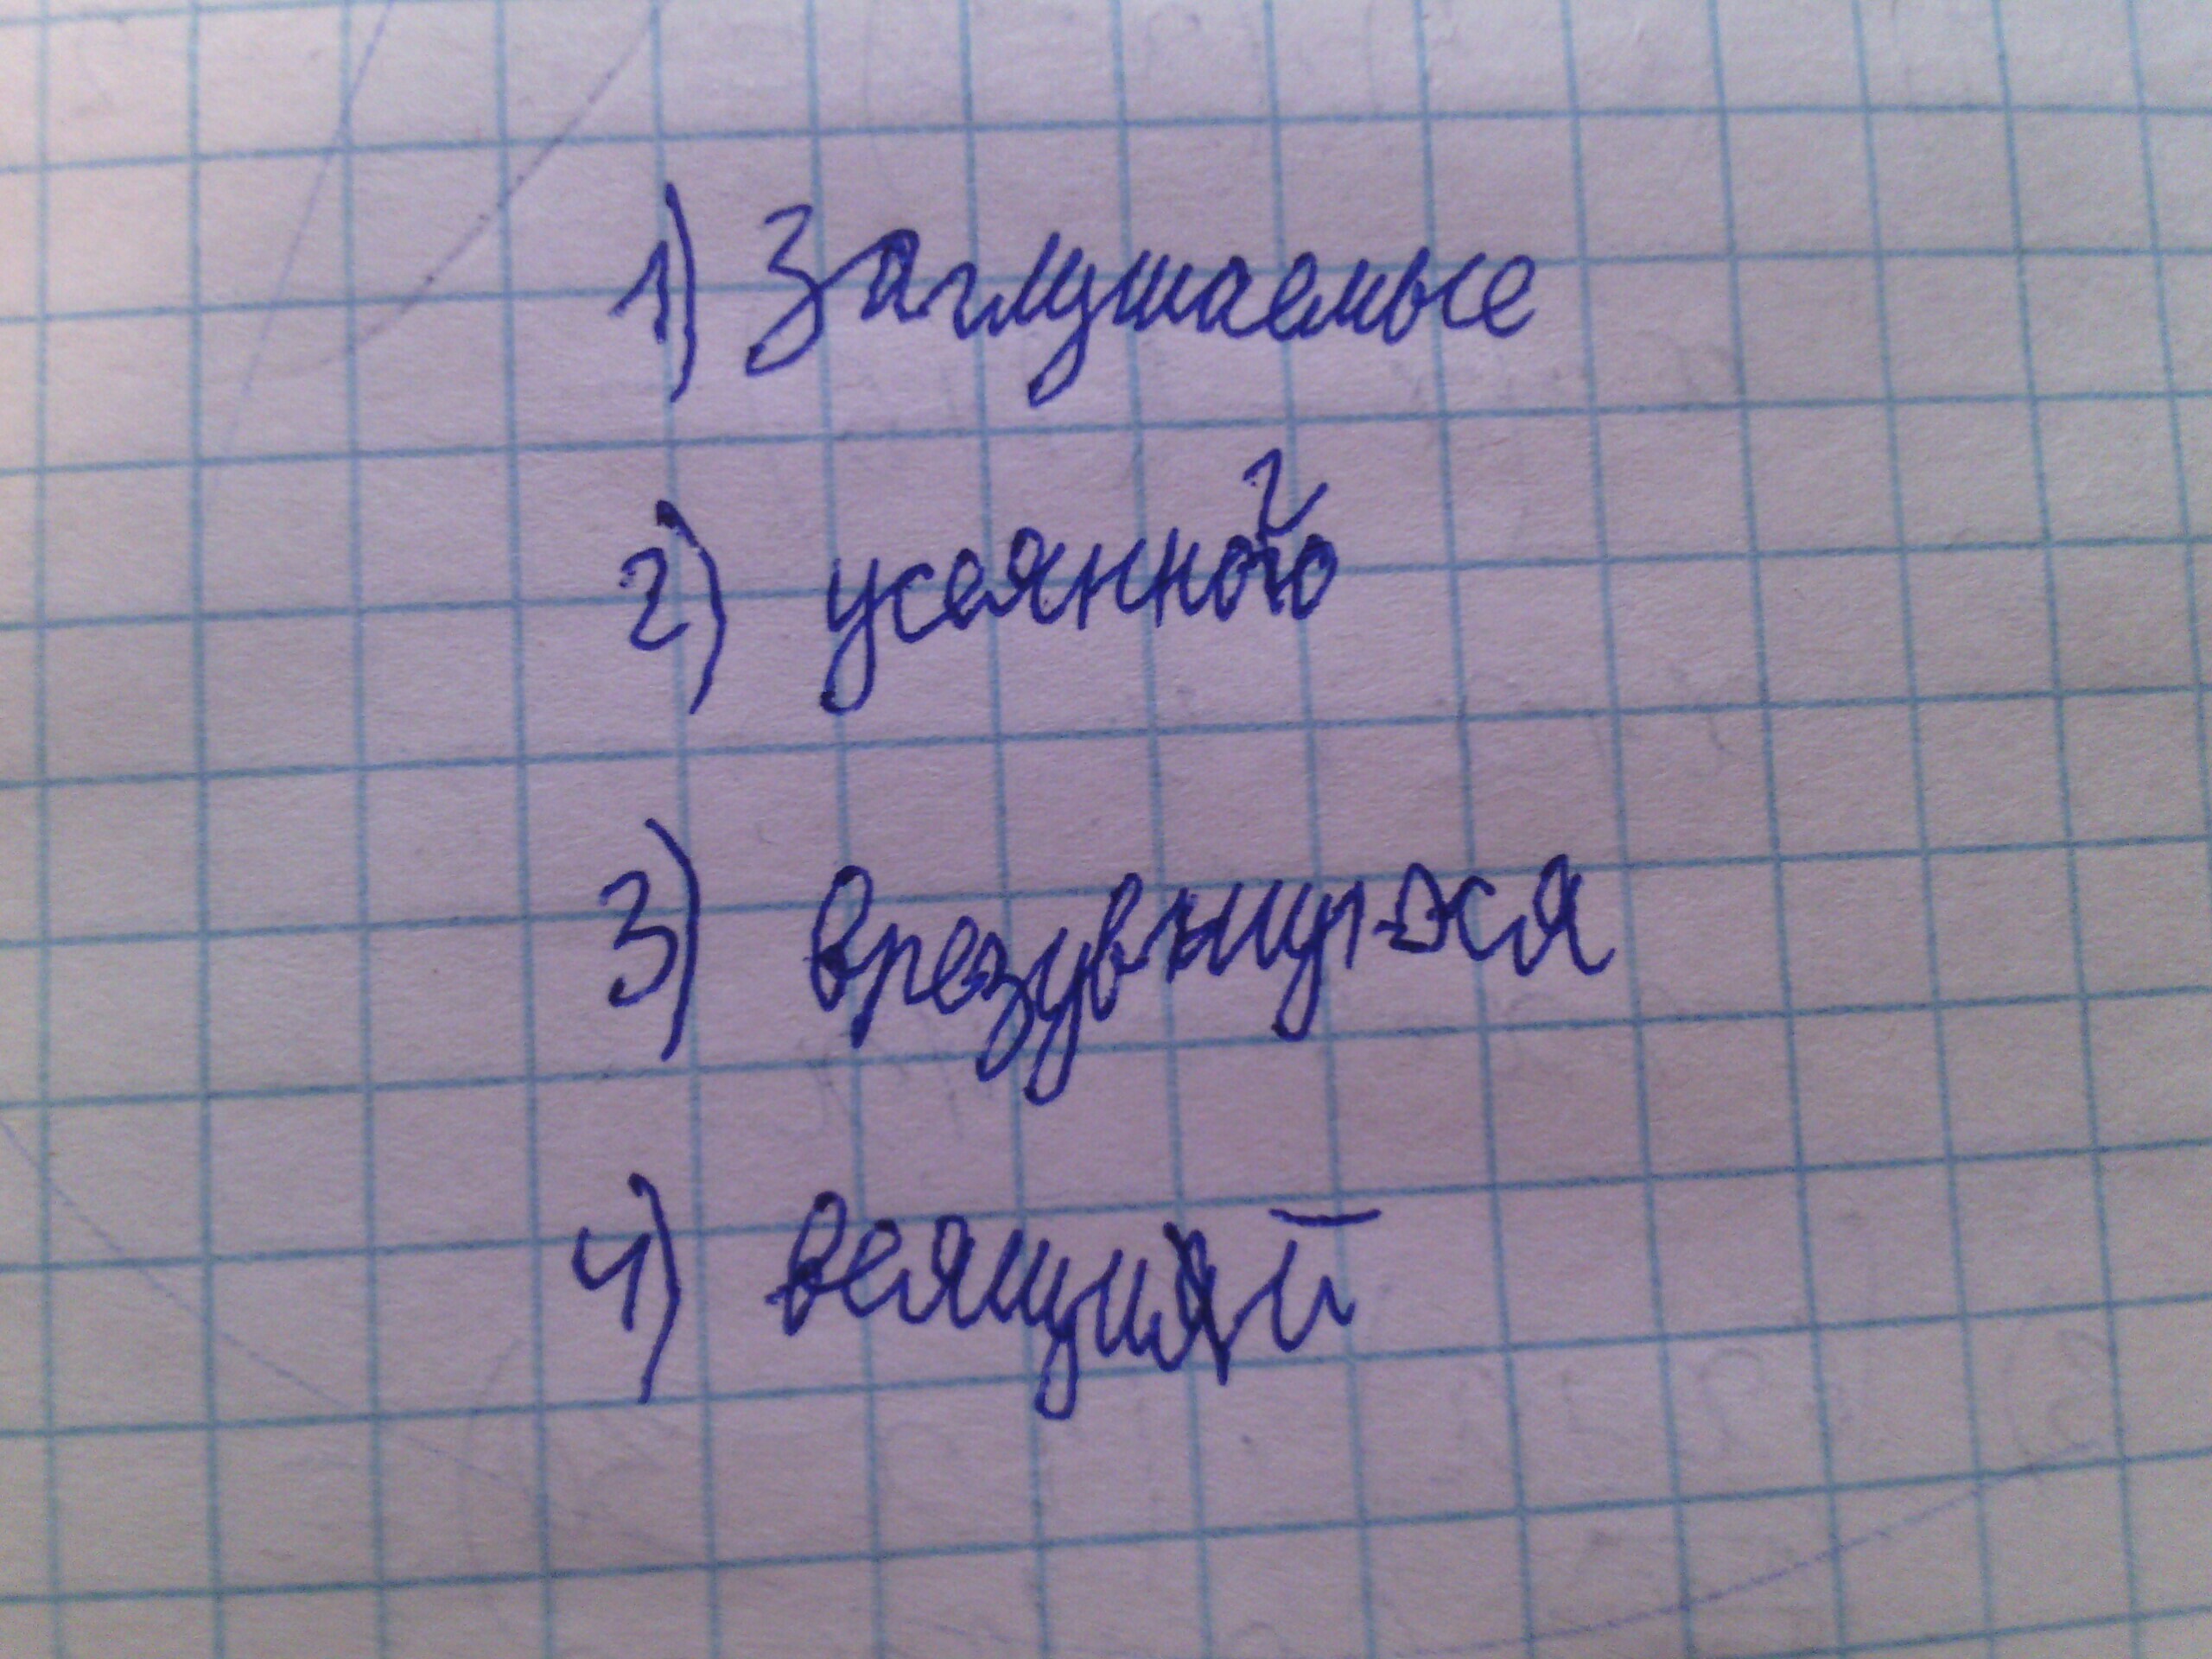 1) Заглушаемые
2) усеянного
3) врезувшуюся
4) веящий